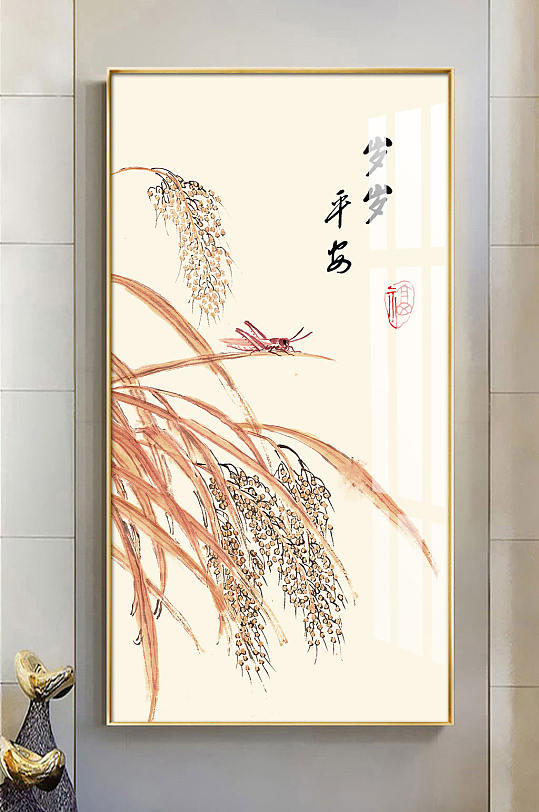 岁岁
平安
福